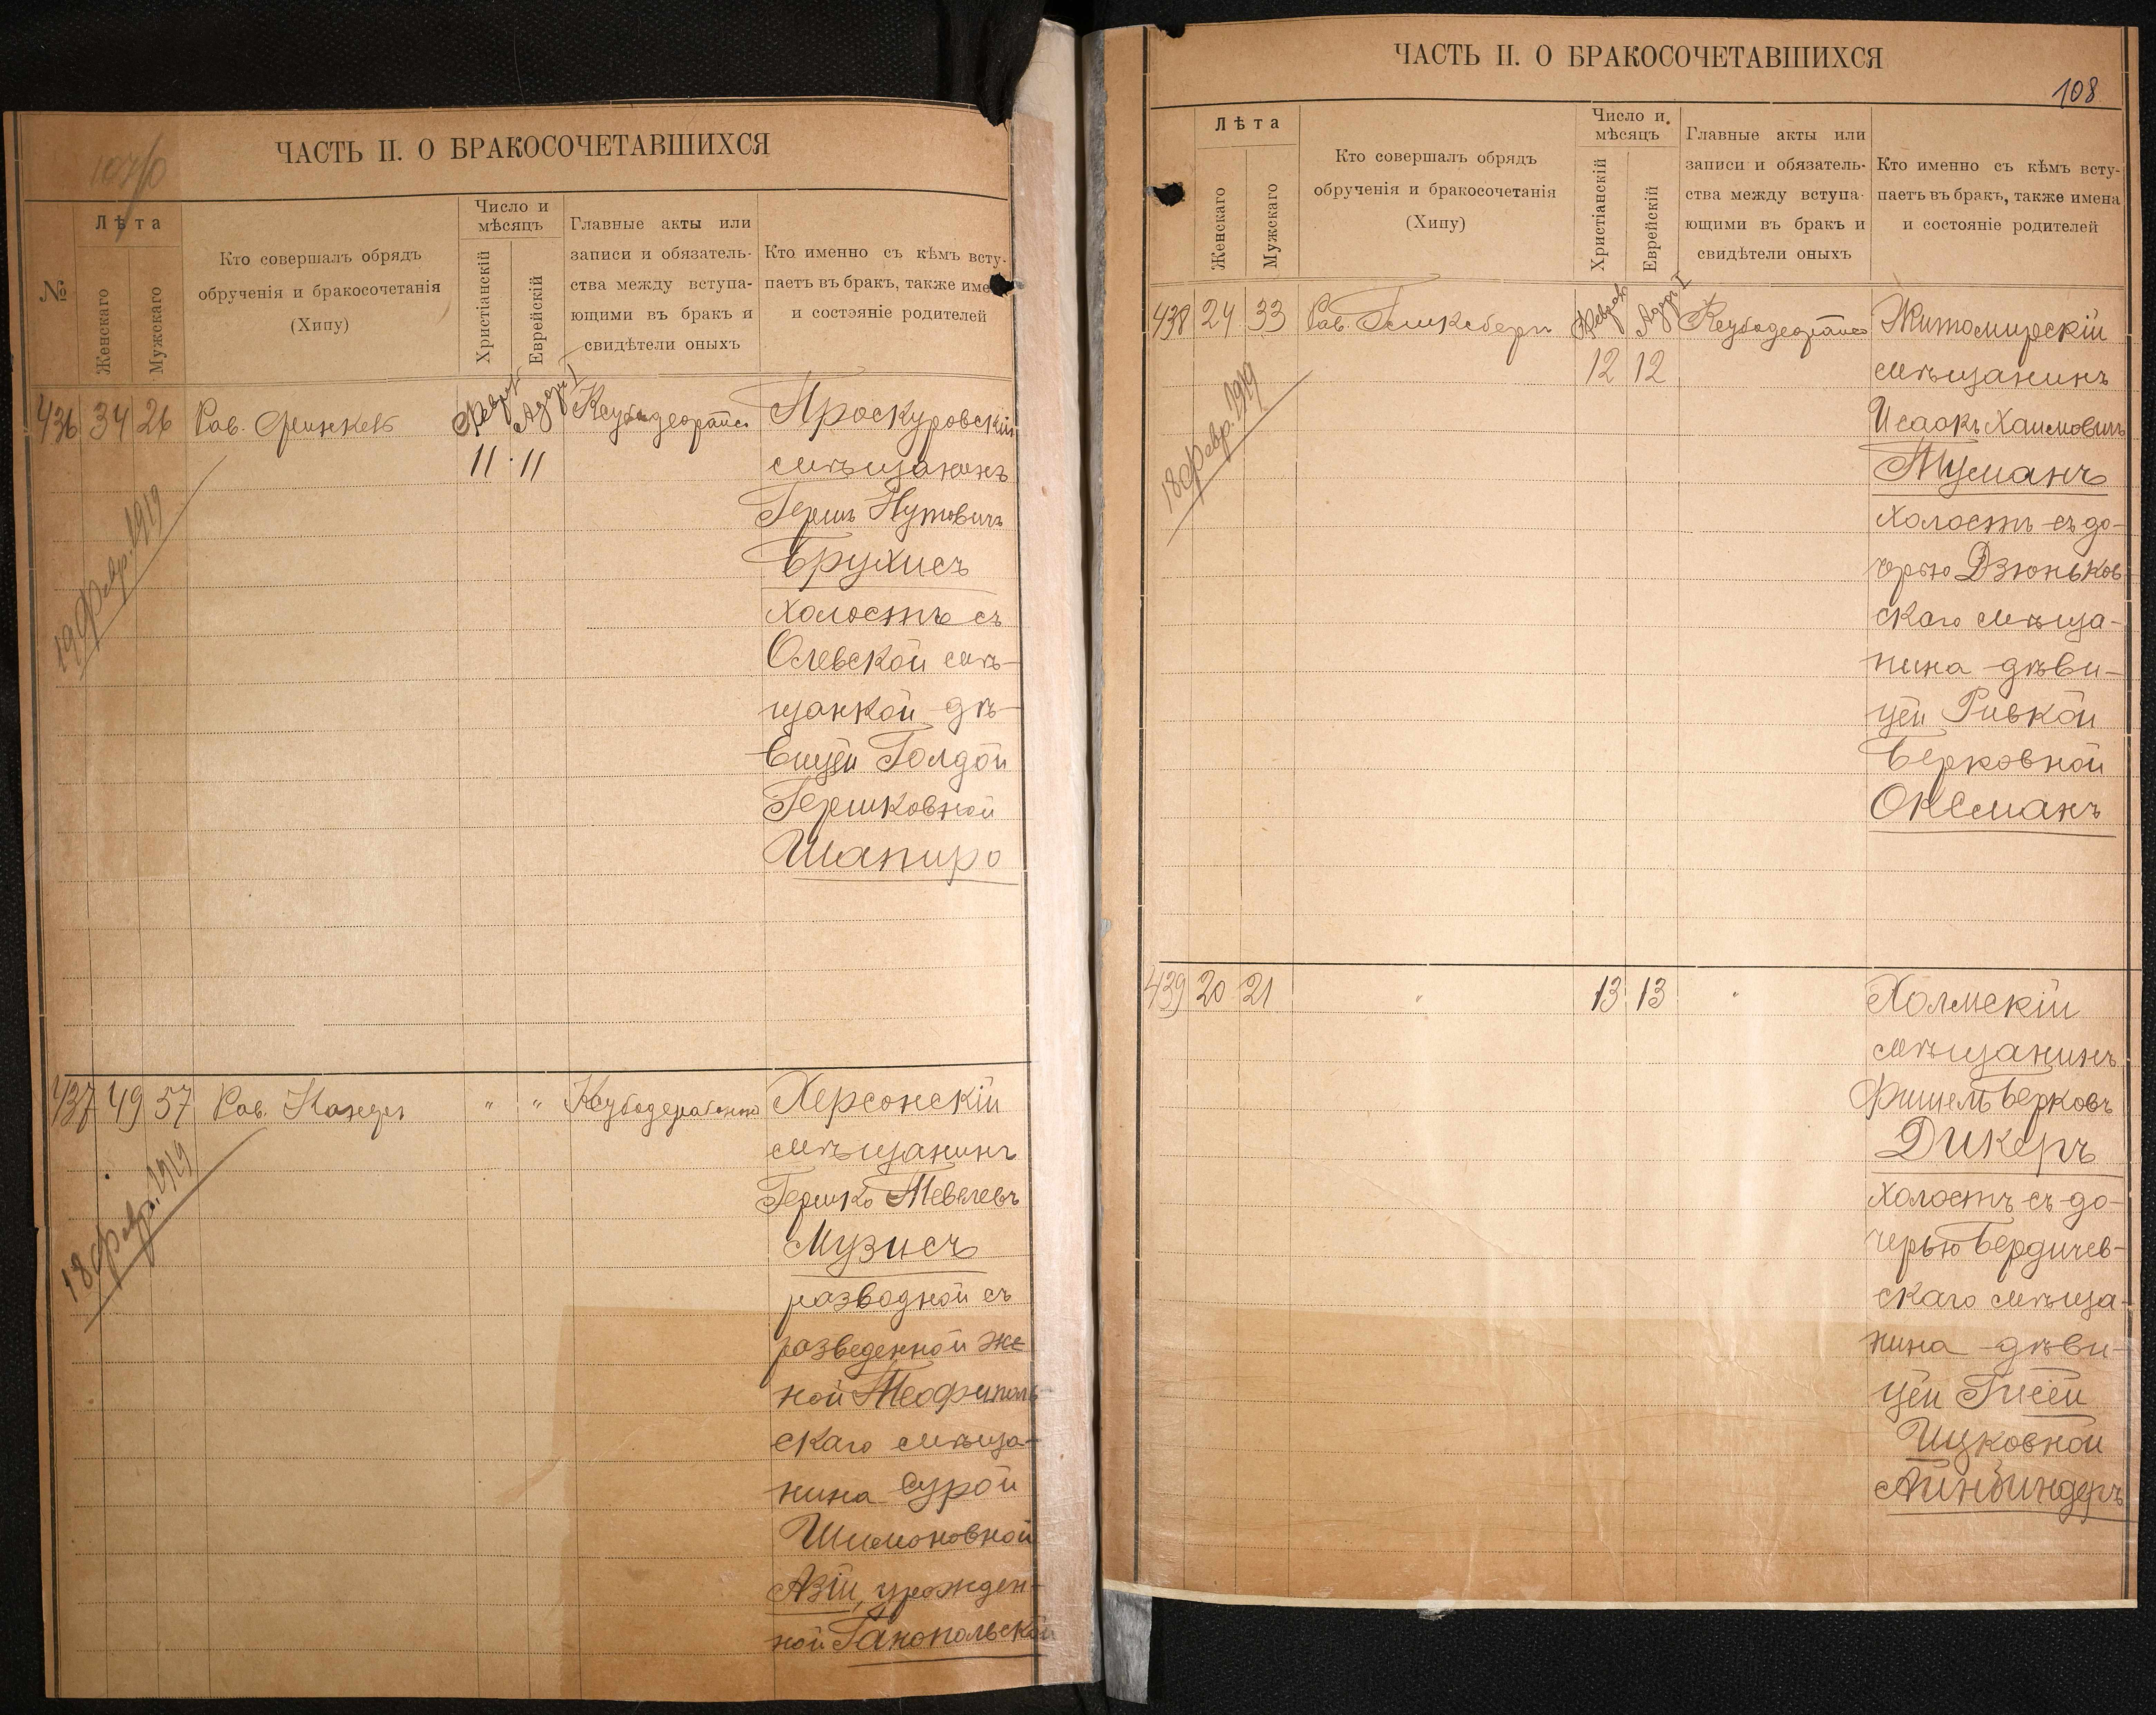 ЧАСТЬ II. О БРАКОСОЧЕТАВШИХСЯ
№
Лѣта
Женскаго
Мужскаго
Кто совершалъ обрядъ
обрученія и бракосочетанія
(Хипу)
Число и
мѣсяцъ
Христіанскій
Еврейскій
Главные акты или
записи и обязатель-
ства между вступа-
ющими въ бракъ и
свидѣтели оныхъ
Кто именно съ кѣмъ всту-
паетъ въ бракъ, также име
и состояніе родителей
436 34 26
Рав.
11 11
19 февр. 1919
Проскуровскій
мѣщанинъ
Гершъ Нутовичъ
Брухисъ
холостъ съ
Олевской мѣ-
щанкой дѣ-
вицей Голдой
Гершковной
Шапиро
437 49 57
Рав.
" "
18 февр. 1919
Херсонскій
мѣщанинъ
Гершко Тевелевъ
Музисъ
разводной съ
разведенной же
ной Теофиполь
скаго мѣща-
нина Сурой
Шимоновной
Азій, урожден-
ной Ганопольской
ЧАСТЬ II. О БРАКОСОЧЕТАВШИХСЯ
108
Лѣта
Женскаго
Мужскаго
Кто совершалъ обрядъ
обрученія и бракосочетанія
(Хипу)
Число и
мѣсяцъ
Христіанскій
Еврейскій
Главные акты или
записи и обязатель-
ства между вступа-
ющими въ бракъ и
свидѣтели оныхъ
Кто именно съ кѣмъ всту-
паетъ въ бракъ, также имена
и состояніе родителей
438 24 33
Рав.
Адаръ I
12 12
18 февр. 1919
Житомирскій
мѣщанинъ
Исаакъ Хаимовичъ
Туманъ
холостъ съ до-
черью Дзюньков-
скаго мѣща-
нина дѣви-
цей Ривкой
Берковной
Оксманъ
439 20 21
" 13 13 "
Холмскій
мѣщанинъ
Фишель Берковъ
Дикеръ
холостъ съ до-
черью Бердичев-
скаго мѣща-
нина дѣви-
цей Гисей
Ицковной
Айнбиндеръ